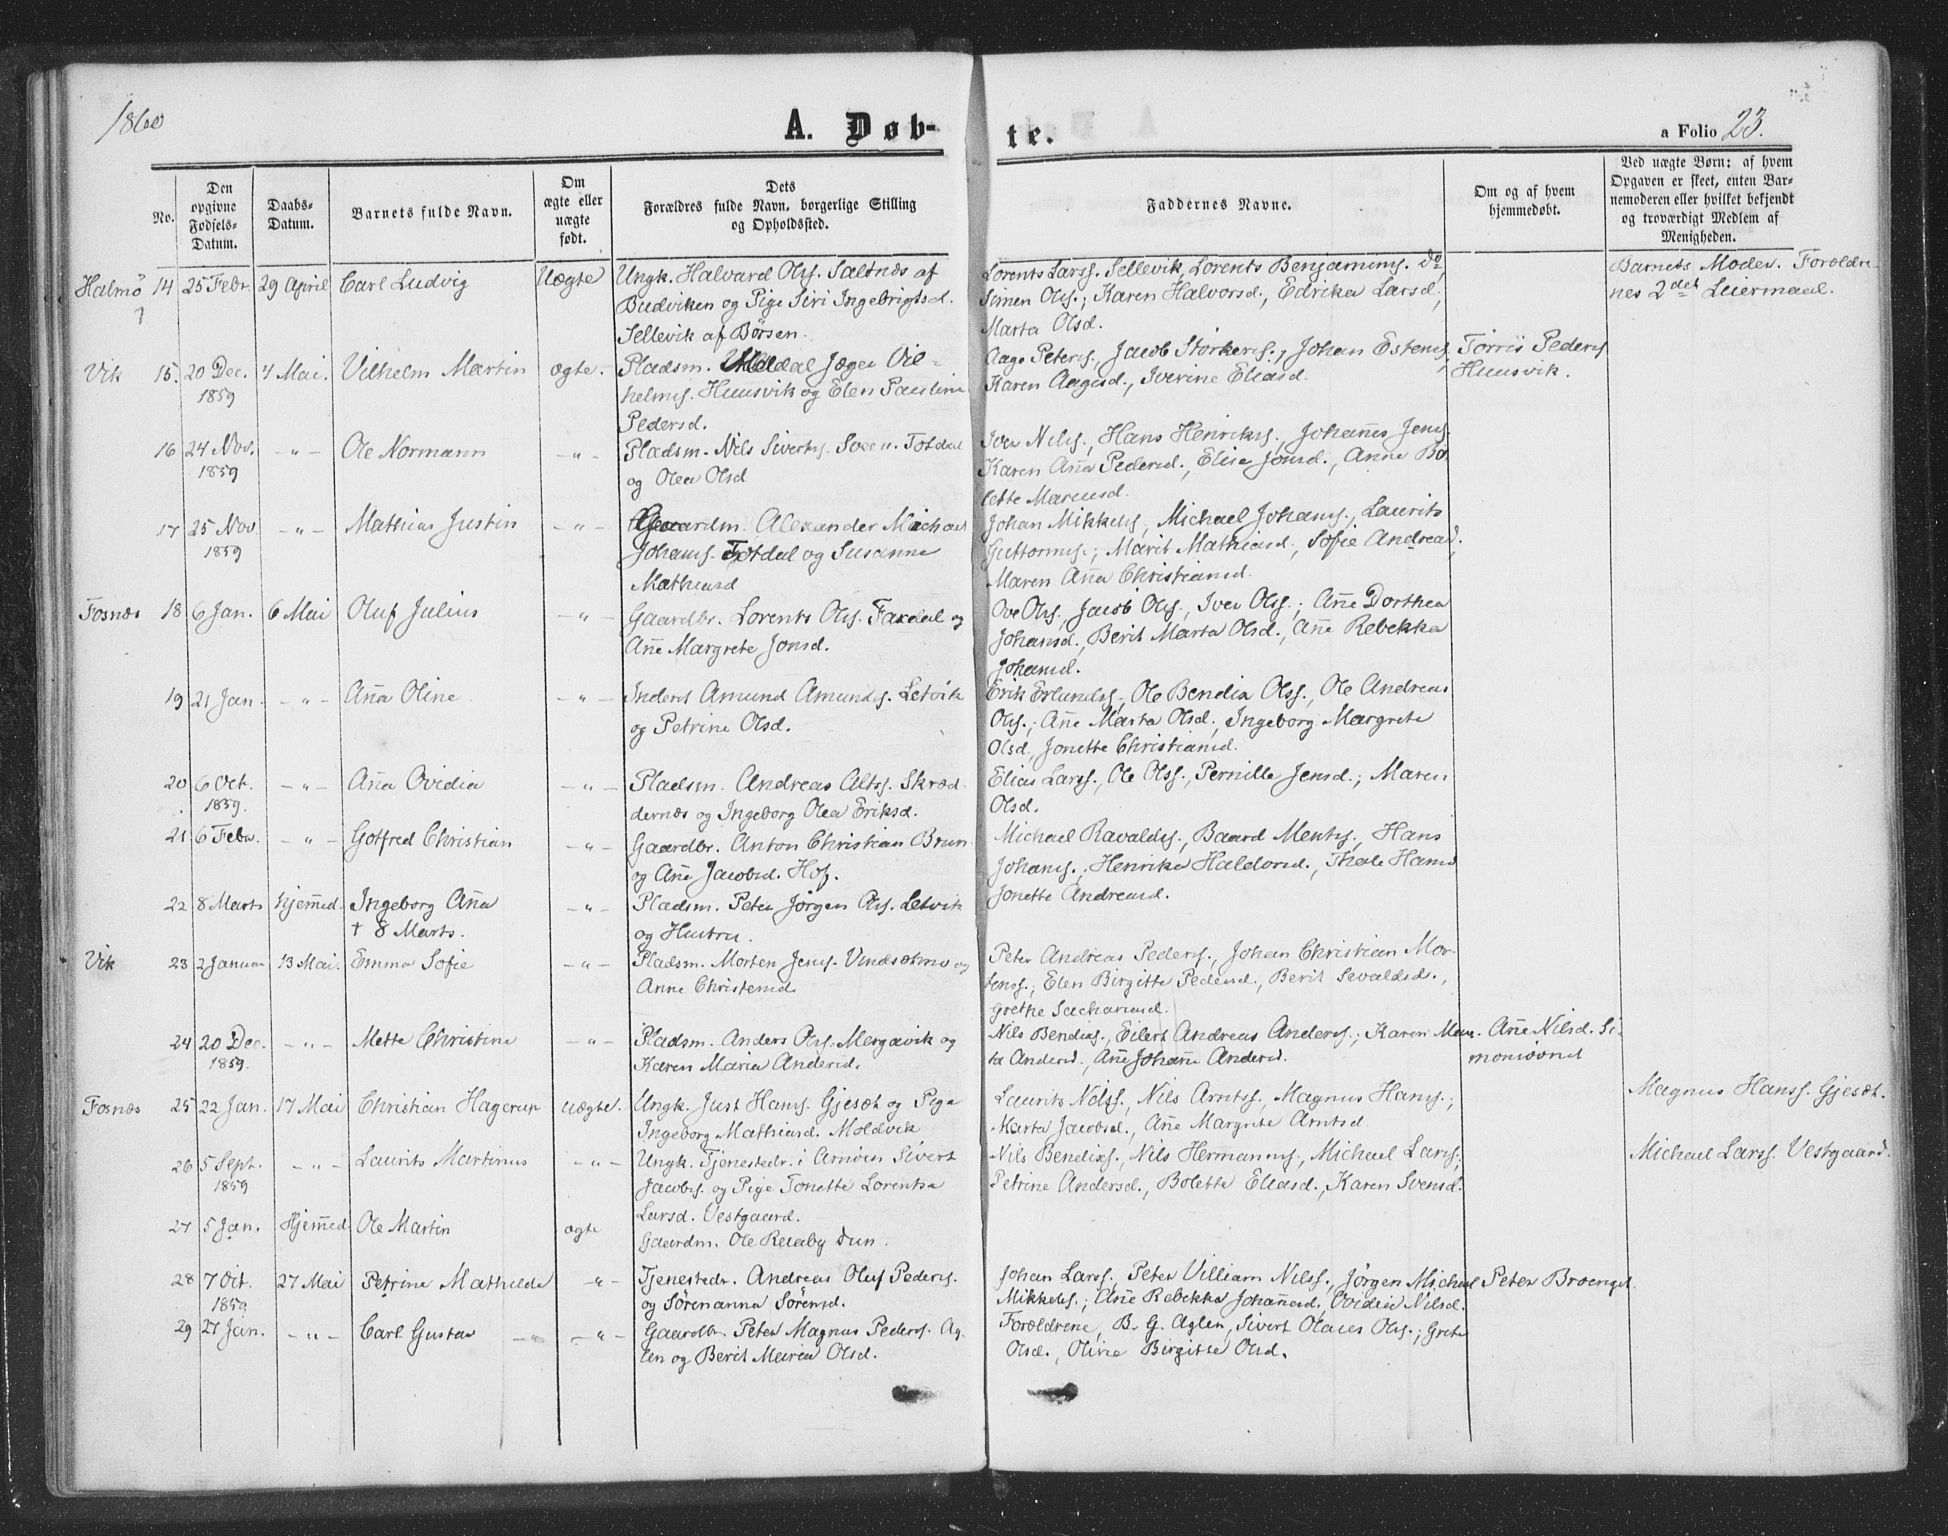 1860
A. Døb-
te.
a Folio 23.
No.
Den opgivne Fødsels-Datum.
Daabs-Datum.
Barnets fulde Navn.
Om ægte eller uægte født.
Dets Forældres fulde Navn, borgerlige Stilling og Opholdssted.
Faddernes Navne.
Om og af hvem hjemmedøbt.
Ved uægte Børn: af hvem Opgaven er skeet, enten Barnemoderen eller hvilket bekjendt og troværdigt Medlem af Menigheden.
Halmö 14 25 Febr. 29 April Carl Ludvig Uægte Ungk. Halvard Ols. Saltnæs af Lorents Larss. Sellevik, Lorents Benjamins. do Barnets Moder. Forældre-
Budviken og Pige Siri Ingebrigtsd. Simen Ols.; Karen Halvorsd., Edrika Larsd, nes 2det Leiermaal.
Sellevik af Börsen. Marta Olsd.
Vik 15. 20 Dec. 4 Mai. Vilhelm Martin ægte. Pladsm. Jæger Vil- Aage Peters., Jacob Storkers., Johan Estens, Torris Peders
1859 helms. Huusvik og Elen Pauline Karen Aagesd., Iverine Eliasd. Huusvik.
Pedersd.
16 24 Nov. -"- Ole Normann -"- Pladsm. Nils Siverts. Sveen Totdal Iver Nils., Hans Henriks., Johannes Jens.
1859 og Olea Olsd Karen Aña Pedersd., Elise Jonsd., Anne Bo
lette Marcusd.
17 25 Nov. -"- Mathias Justin -"- Gaardm. Alexander Michael Johan Mikkels, Michael Johans, Laurits
1859 Johans. Totdal og Susanna Guttorms.; Marit Mathiasd., Sofie Andread,
Mathiasd Maren Aña Christiansd.
Fosnæs 18 6 Jan. 6 Mai Oluf Julius -"- Gaardbr. Lorents Ols. Faxdal og Ove Ols, Jacob Ols., Iver Ols.; Añe Dorthea
Añe Margrete Jonsd. Johansd., Berit Marta Olsd., Añe Rebekka
Johansd.
19 21 Jan. -"- Aña Oline -"- Inderst Amund Amunds. Letvik Erik Erlands., Ole Bendix Olss., Ole Andreas
og Petrine Olsd. Ols.; Añe Marta Olsd, Ingeborg Margrete
Olsd, Jonette Christiansd.
20 6 Oct. -"- Aña Ovidia -"- Pladsm. Andreas Alts. Skræd- Elias Larss., Ole Olss., Pernille Jensd.; Maren
1859. dernæs og Ingeborg Olea Eriksd. Olsd.
21 6 Febr. -"- Gotfred Christian -"- Gaardbr. Anton Christian Brun Michael Ravalds., Baard Ments., Hans
og Añe Jacobsd. Hof. Johans.; Henrika Haldorsd., Thale Hansd
Jonette Andreasd.
22 8 Marts hjemmed. Ingeborg Aña -"- Pladsm. Peter Jörgen Ols. Letvik
† 8 Marts. og Hustru.
Vik 23 2 Januar 13 Mai. Emma Sofie -"- Pladsm. Morten Jens. Vindsetmo og Peter Andreas Peders., Johan Christian Mor-
Anne Christensd. tens.; Elen Birgitte Pedersd., Berit Sevaldsd.,
Grethe Sachariasd.
24 20 Dec. -"- Mette Christine -"- Pladsm. Anders Ols. Mergavik og Nils Bendixs., Eilert Andreas Anders.; Karen Mar- Añe Nilsd. Si-
1859. Karen Maria Andersd. ta Andersd., Añe Johañe Andersd. monsövnet
Fosnæs 25 22 Jan. 17 Mai Christian Hagerup uægte. Ungk. Just Hans. Gjesæt og Pige Laurits Nilss., Nils Arnts., Magnus Hans.; Magnus Hanss. Gjesæt.
Ingeborg Mathiasd. Moldvik Marta Jacobsd., Añe Margrete Arntsd.
26 5 Sept. -"- Laurits Martinus -"- Ungk. Tjenestedr. i Arnöen Sivert Nils Bendixs., Nils Hermanns., Michael Lars.; Michael Larss. Vestgaard.
1859 Jacobs. og Pige Tonette Lorentsa Petrine Andersd., Bolette Eliasd., Karen Svensd.
Larsd. Vestgaard.
27 5 Jan. Hjemmed Ole Martin ægte Gaardm. Ole Raaby Dun.
28 7 Oct. 27 Mai Petrine Mathilde -"- Tjenestedr. Andreas Oluf Peders. Johan Larss., Peter Villiam Nilss., Jörgen Michael Peter Brænget
1859 og Sörenanna Sörensd. Mikkels.; Añe Rebekka Johañesd. Ovidia Nilsd.
29 27 Jan. -"- Carl Gustav -"- Gaardbr. Peter Magnus Peders. Ag- Forældrene, B. G. Aglen, Sivert Olaus Ols.; Grete
len og Berit Maria Olsd. Olsd., Olivie Birgitte Olsd.